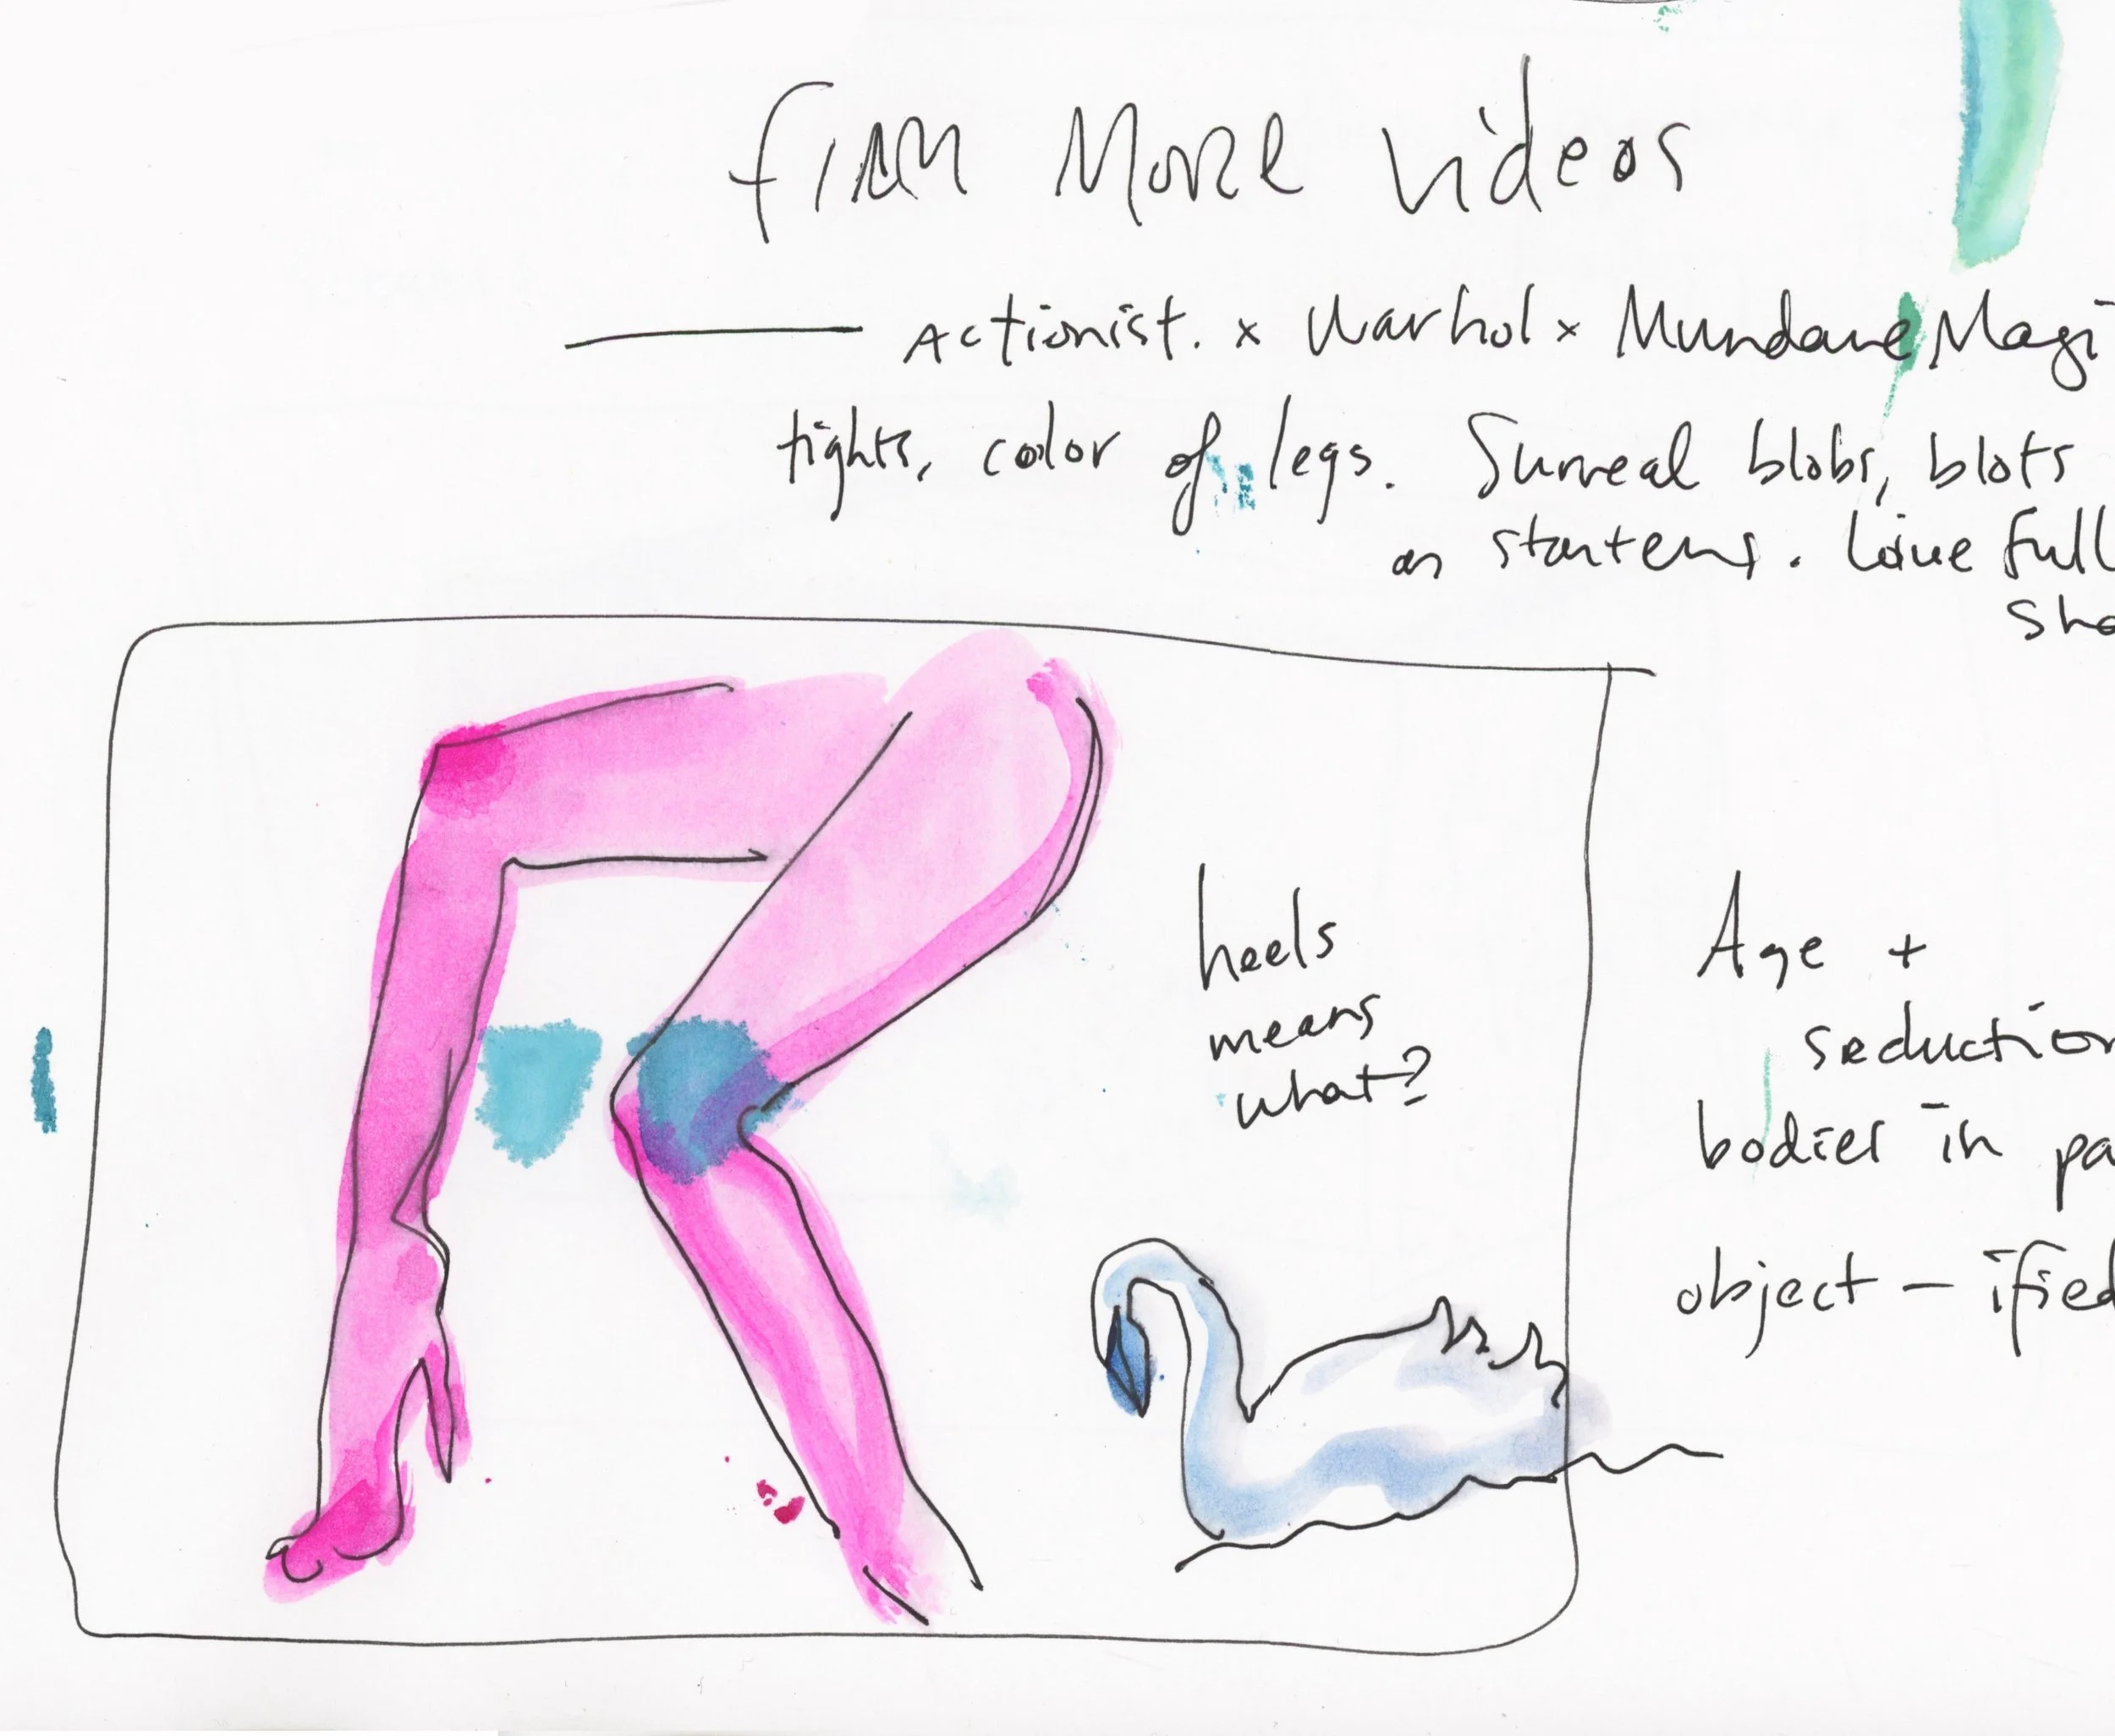 film More videos
Actionist. x Warhol x Mundane Magi
tights, color of legs. Surreal blobs, blots
as starters. Line full
sho
heels
means
what?
Age +
seduction
bodies in pa
object - ified